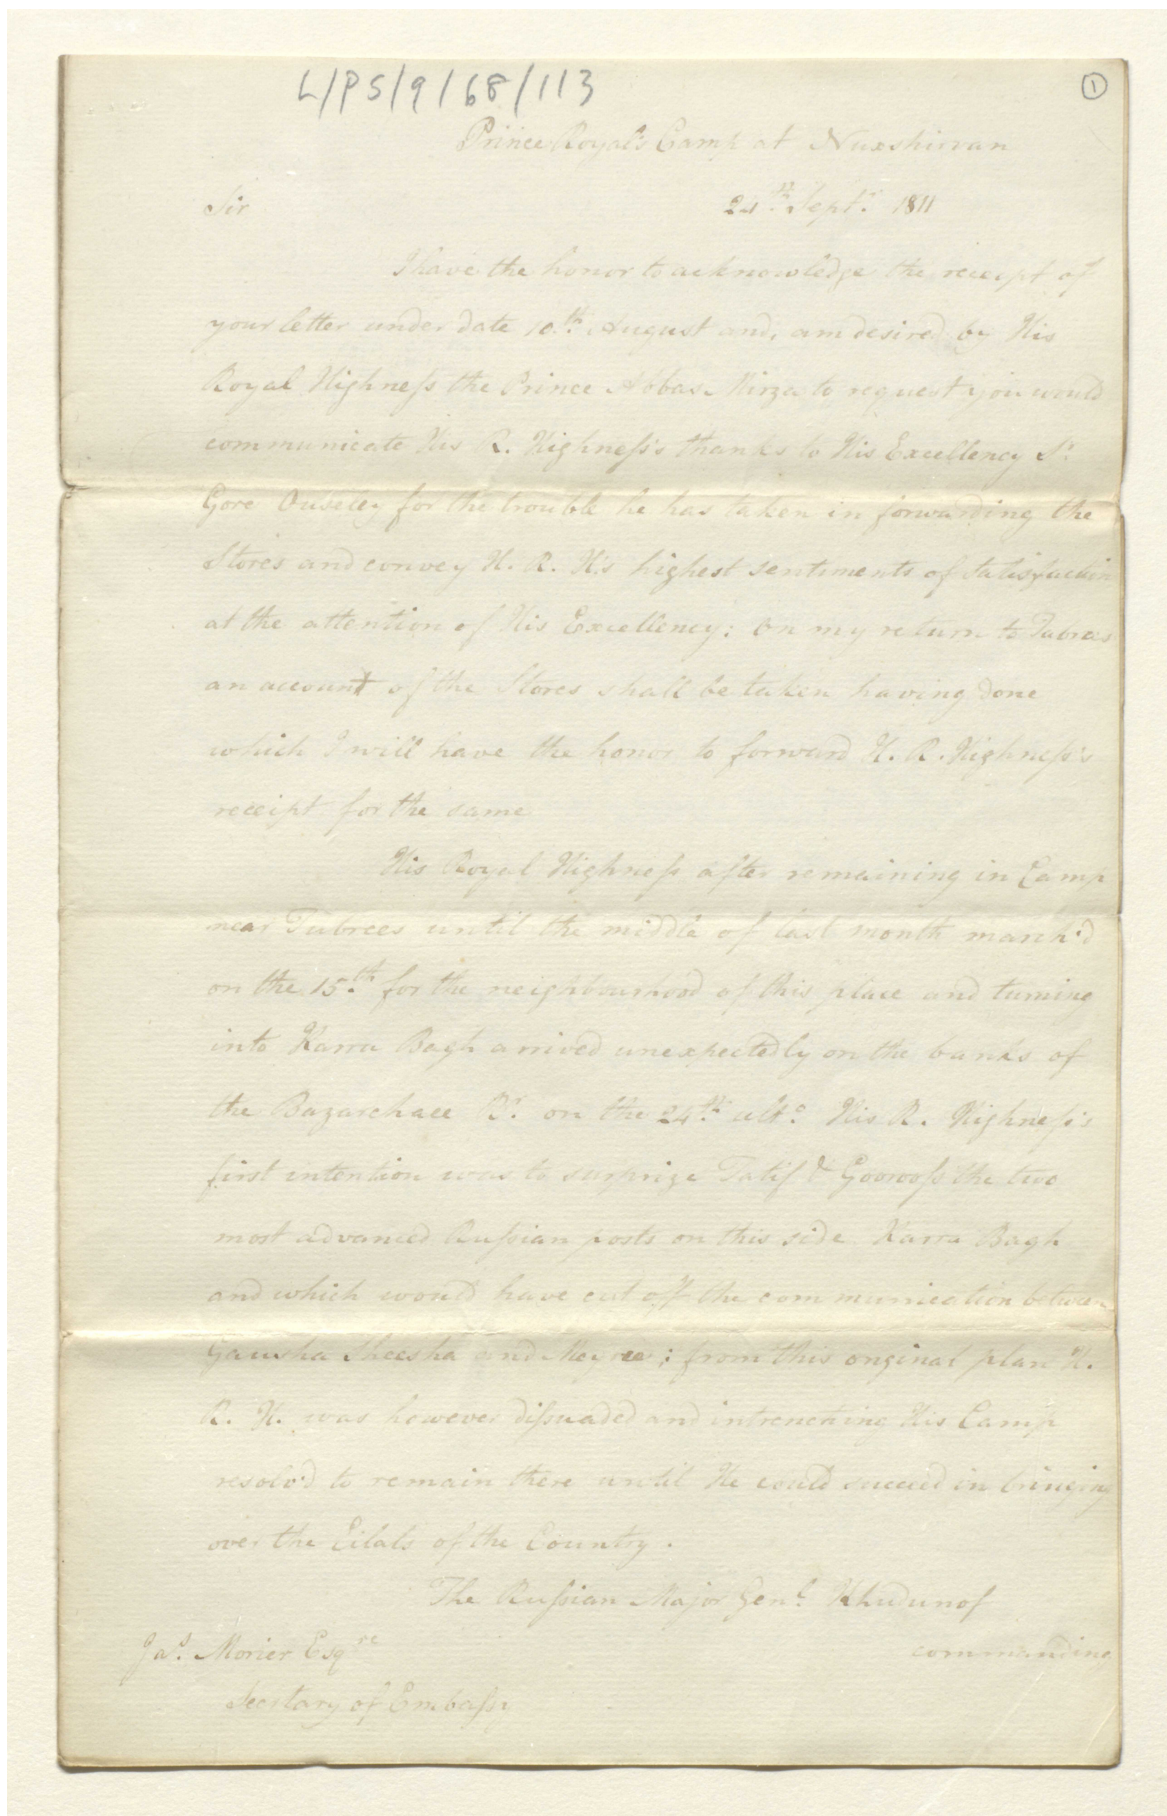 L/PS/9/68/113
1
Prince Royal's Camp at Nuxshirvan
Sir 24th. Septr. 1811
I have the honor to acknowledge the receipt of
your letter under date 10th. August and, am desired by His
Royal Highneſs the Prince Abbas Mirza to request you would
communicate His R. Highneſs's thanks to His Excellency Sr.
Gore Ouseley for the trouble he has taken in forwarding the
Stores and convey H. R. H's highest sentiments of Satisfaction
at the attention of His Excellency; On my return to Tabrees
an account of the Stores shall be taken having done
which I will have the honor to forward H. R. Highneſs's
receipt for the same
His Royal Highneſs after remaining in Camp
near Tubrees until the middle of last month march'd
on the 15th. for the neighbourhood of this place and turning
into Karra Bagh arrived unexpectedly on the banks of
the Bazarchaee Rr. on the 24th. ulto. His R. Highneſs's
first intention was to surprize Tatif & Goorooſs the two
most advanced Ruſsian posts on this side Karra Bagh
and which would have cut off the communication between
Gausha Sheesha and Megree; from this original plan H.
R. H. was however diſsuaded and intrenching His Camp
resolv'd to remain there until He could succeed in bringing
over the Eilats of the Country.
The Ruſsian Major Genl. Khudunof
Jas. Morier Esqre commanding
Secretary of Embaſsy